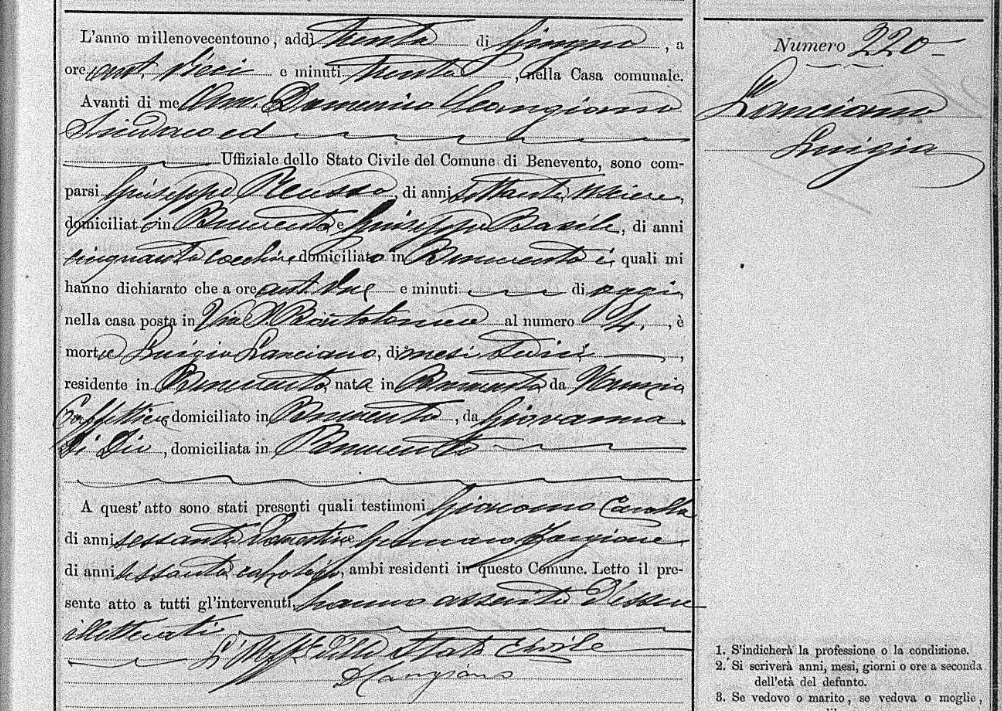 L'anno millenovecentouno, addì trenta di Giugno, a
ore ant. dieci e minuti trenta, nella Casa comunale.
Avanti di me Domenico Mangiano
Sindaco ed
Uffiziale dello Stato Civile del Comune di Benevento, sono com-
parsi Giuseppe Russo, di anni settanta usciere
domiciliato in Benevento e Giuseppe Basile, di anni
cinquanta cocchiere domiciliato in Benevento i quali mi
hanno dichiarato che a ore ant. due e minuti di oggi
nella casa posta in Via S. Bartolomeo al numero 4, è
morta Luigia Lanciano, di mesi sedici,
residente in Benevento, nata in Benevento da Nunzio
Caffettiere, domiciliato in Benevento, da Giovanna
Di Dio, domiciliata in Benevento
A quest'atto sono stati presenti quali testimoni Giacomo
di anni sessanta domestico e Gennaro Forgione
di anni sessanta, ambi residenti in questo Comune. Letto il pre-
sente atto a tutti gl'intervenuti, hanno asserito d'essere
illetterati
L'Uff. dello Stato Civile
Numero 220
Lanciano
Luigia
1. S'indicherà la professione o la condizione.
2. Si scriverà anni, mesi, giorni o ore a seconda
dell'età del defunto.
3. Se vedovo o marito, se vedova o moglie,